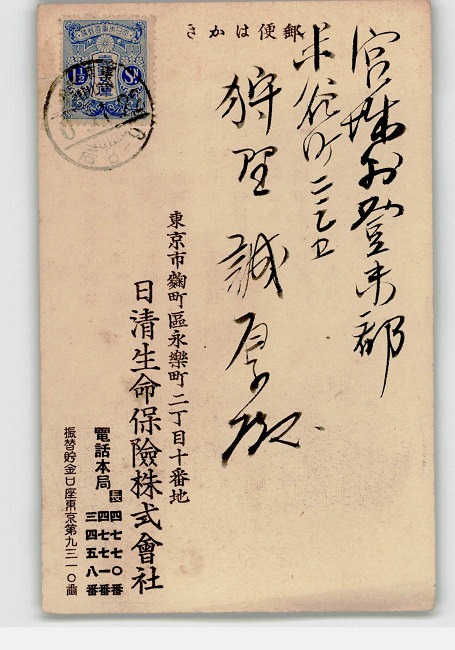 郵便はかき
宮城県登米郡
米谷町
狩野誠
東京市麹町區永樂町二丁目十番地
日清生命保險株式會社
電話本局
長四七七〇番
四七七一番
三四五八番
振替貯金口座東京第九三一〇番
1½ Sn